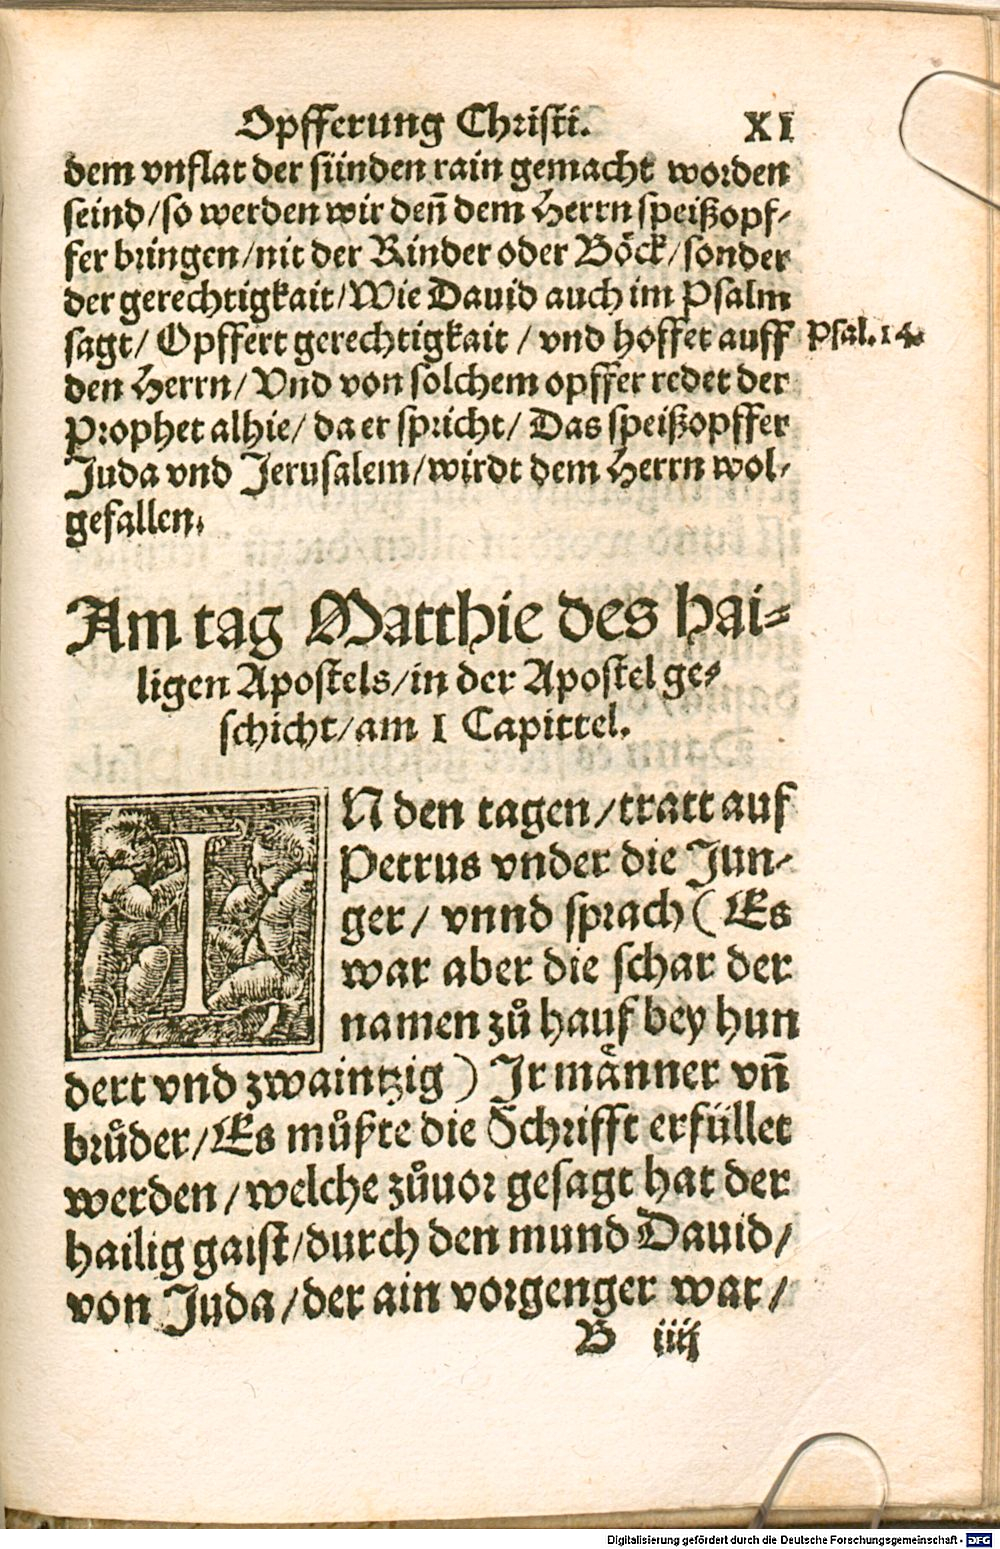 Opfferung Christi. XI
dem vnflat der sünden rain gemacht worden
seind/so werden wir deñ dem Herrn speißopf-
fer bringen/nit der Rinder oder Böck/sonder
der gerechtigkait/Wie Dauid auch im Psalm
sagt/ Opffert gerechtigkait / vnd hoffet auff
Psal. 14.
den Herrn/ Vnd von solchem opffer redet der
Prophet alhie/ da er spricht/ Das speißopffer
Juda vnd Jerusalem/wirdt dem Herrn wol-
gefallen.
Am tag Matthie des hai-
ligen Apostels/in der Apostel ge-
schicht/am I Capittel.
IN den tagen/tratt auf
Petrus vnder die Jun-
ger/ vnnd sprach (Es
war aber die schar der
namen zů hauf bey hun
dert vnd zwaintzig) Jr maͤnner vñ
bruͤder/Es muͤßte die Schrifft erfüllet
werden/welche zůuor gesagt hat der
hailig gaist/durch den mund Dauid/
von Juda/der ain vorgenger war/
B iiij
Digitalisierung gefördert durch die Deutsche Forschungsgemeinschaft - DFG